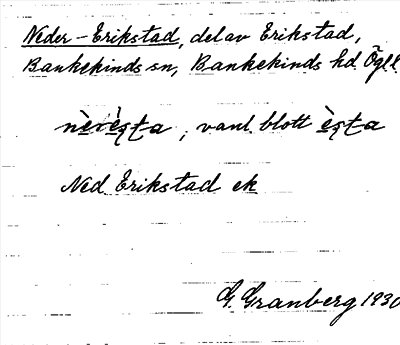 Neder-Erikstad, del av Erikstad,
Bankekinds sn, Bankekinds hd. Ögl.
, vanl. blott
Ned. Erikstad ek
G. Granberg 1930